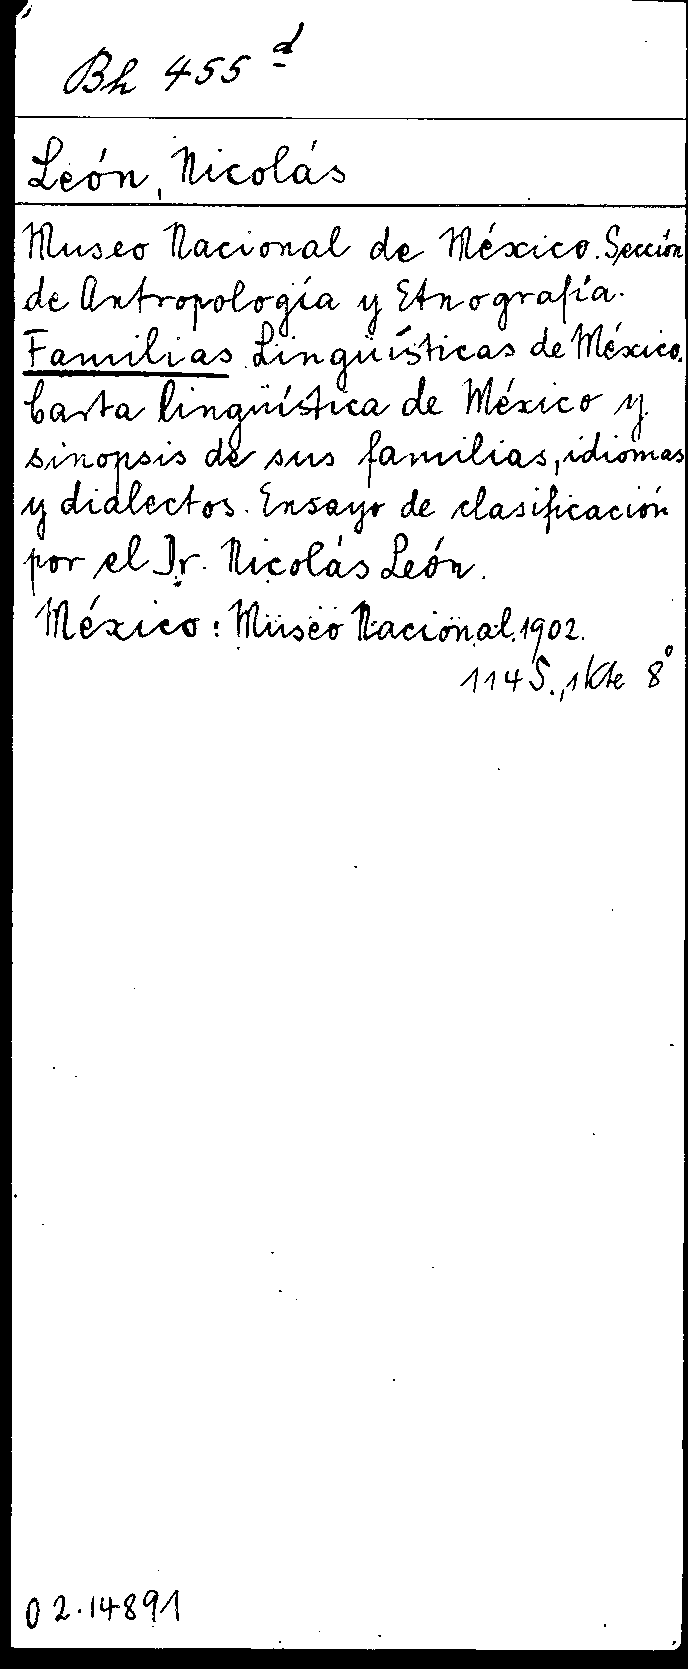 Bh 455 d
León, Nicolás
Museo Nacional de México. Sección
de Antropología y Etnografía.
Familias Lingüísticas de México.
Carta lingüística de México y
sinopsis de sus familias, idiomas
y dialectos. Ensayo de clasificación
por el Dr. Nicolás León.
México: Museo Nacional. 1902.
114 S., 1 Kte 8°
02.14891